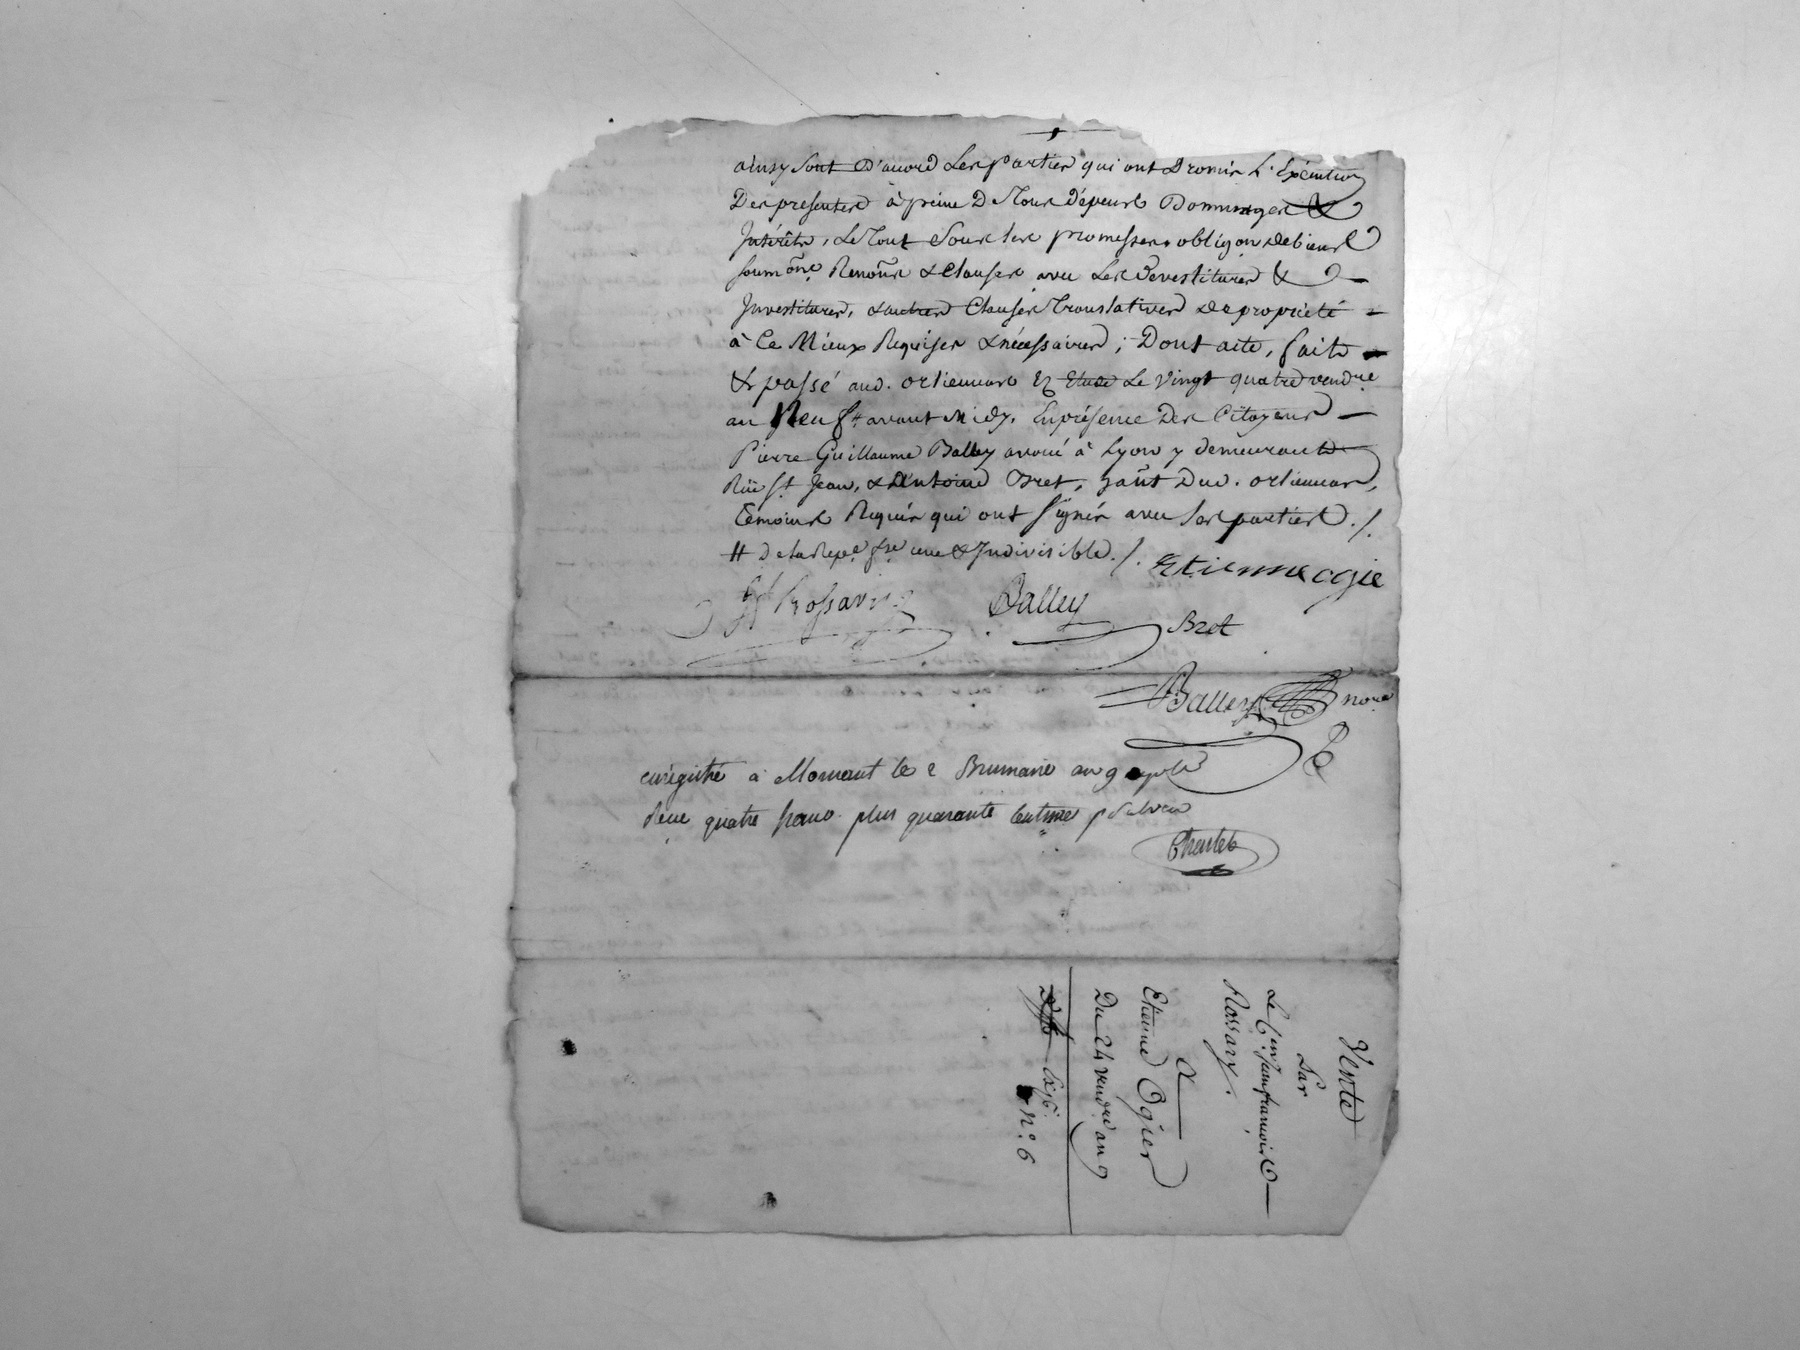 ainsy Sont D'accord Les parties qui ont Promis L'Exécution
Des presentes à peine De Tous dépens Dommages &
Intérêts, Le Tout Sous les promesses, obligõn de biens
soumõns Renõns & Clauses avec Les Devestitures &
Investitures, & autres Clauses Translatives de propriété
à Ce Mieux Requises & nécessaires ; Dont acte, fait
& passé aud. orliennas Ez Etude Le Vingt quatre vendre
an Neuf # avant Midy, En présence Des Citoyens
Pierre Guillaume Balley avoué à Lyon y demeurant
Rüe St. Jean, & Antoine Bret, Dud. orliennas,
Témoins Requis qui ont signés avec les parties ./.
# De la Repe. fse. une & Indivisible ./.
Etienne ogie
Jf Rossary
Balley
Bret
Balley nore
enregistré a Mornant le 2 Brumaire an 9
Reçu quatre francs plus quarante Centimes
Vente
Par
Le Cen. Jean françois
Rossary.
A
Etienne Ogier
Du 24 vendre an 9
Exp.
n.o 6